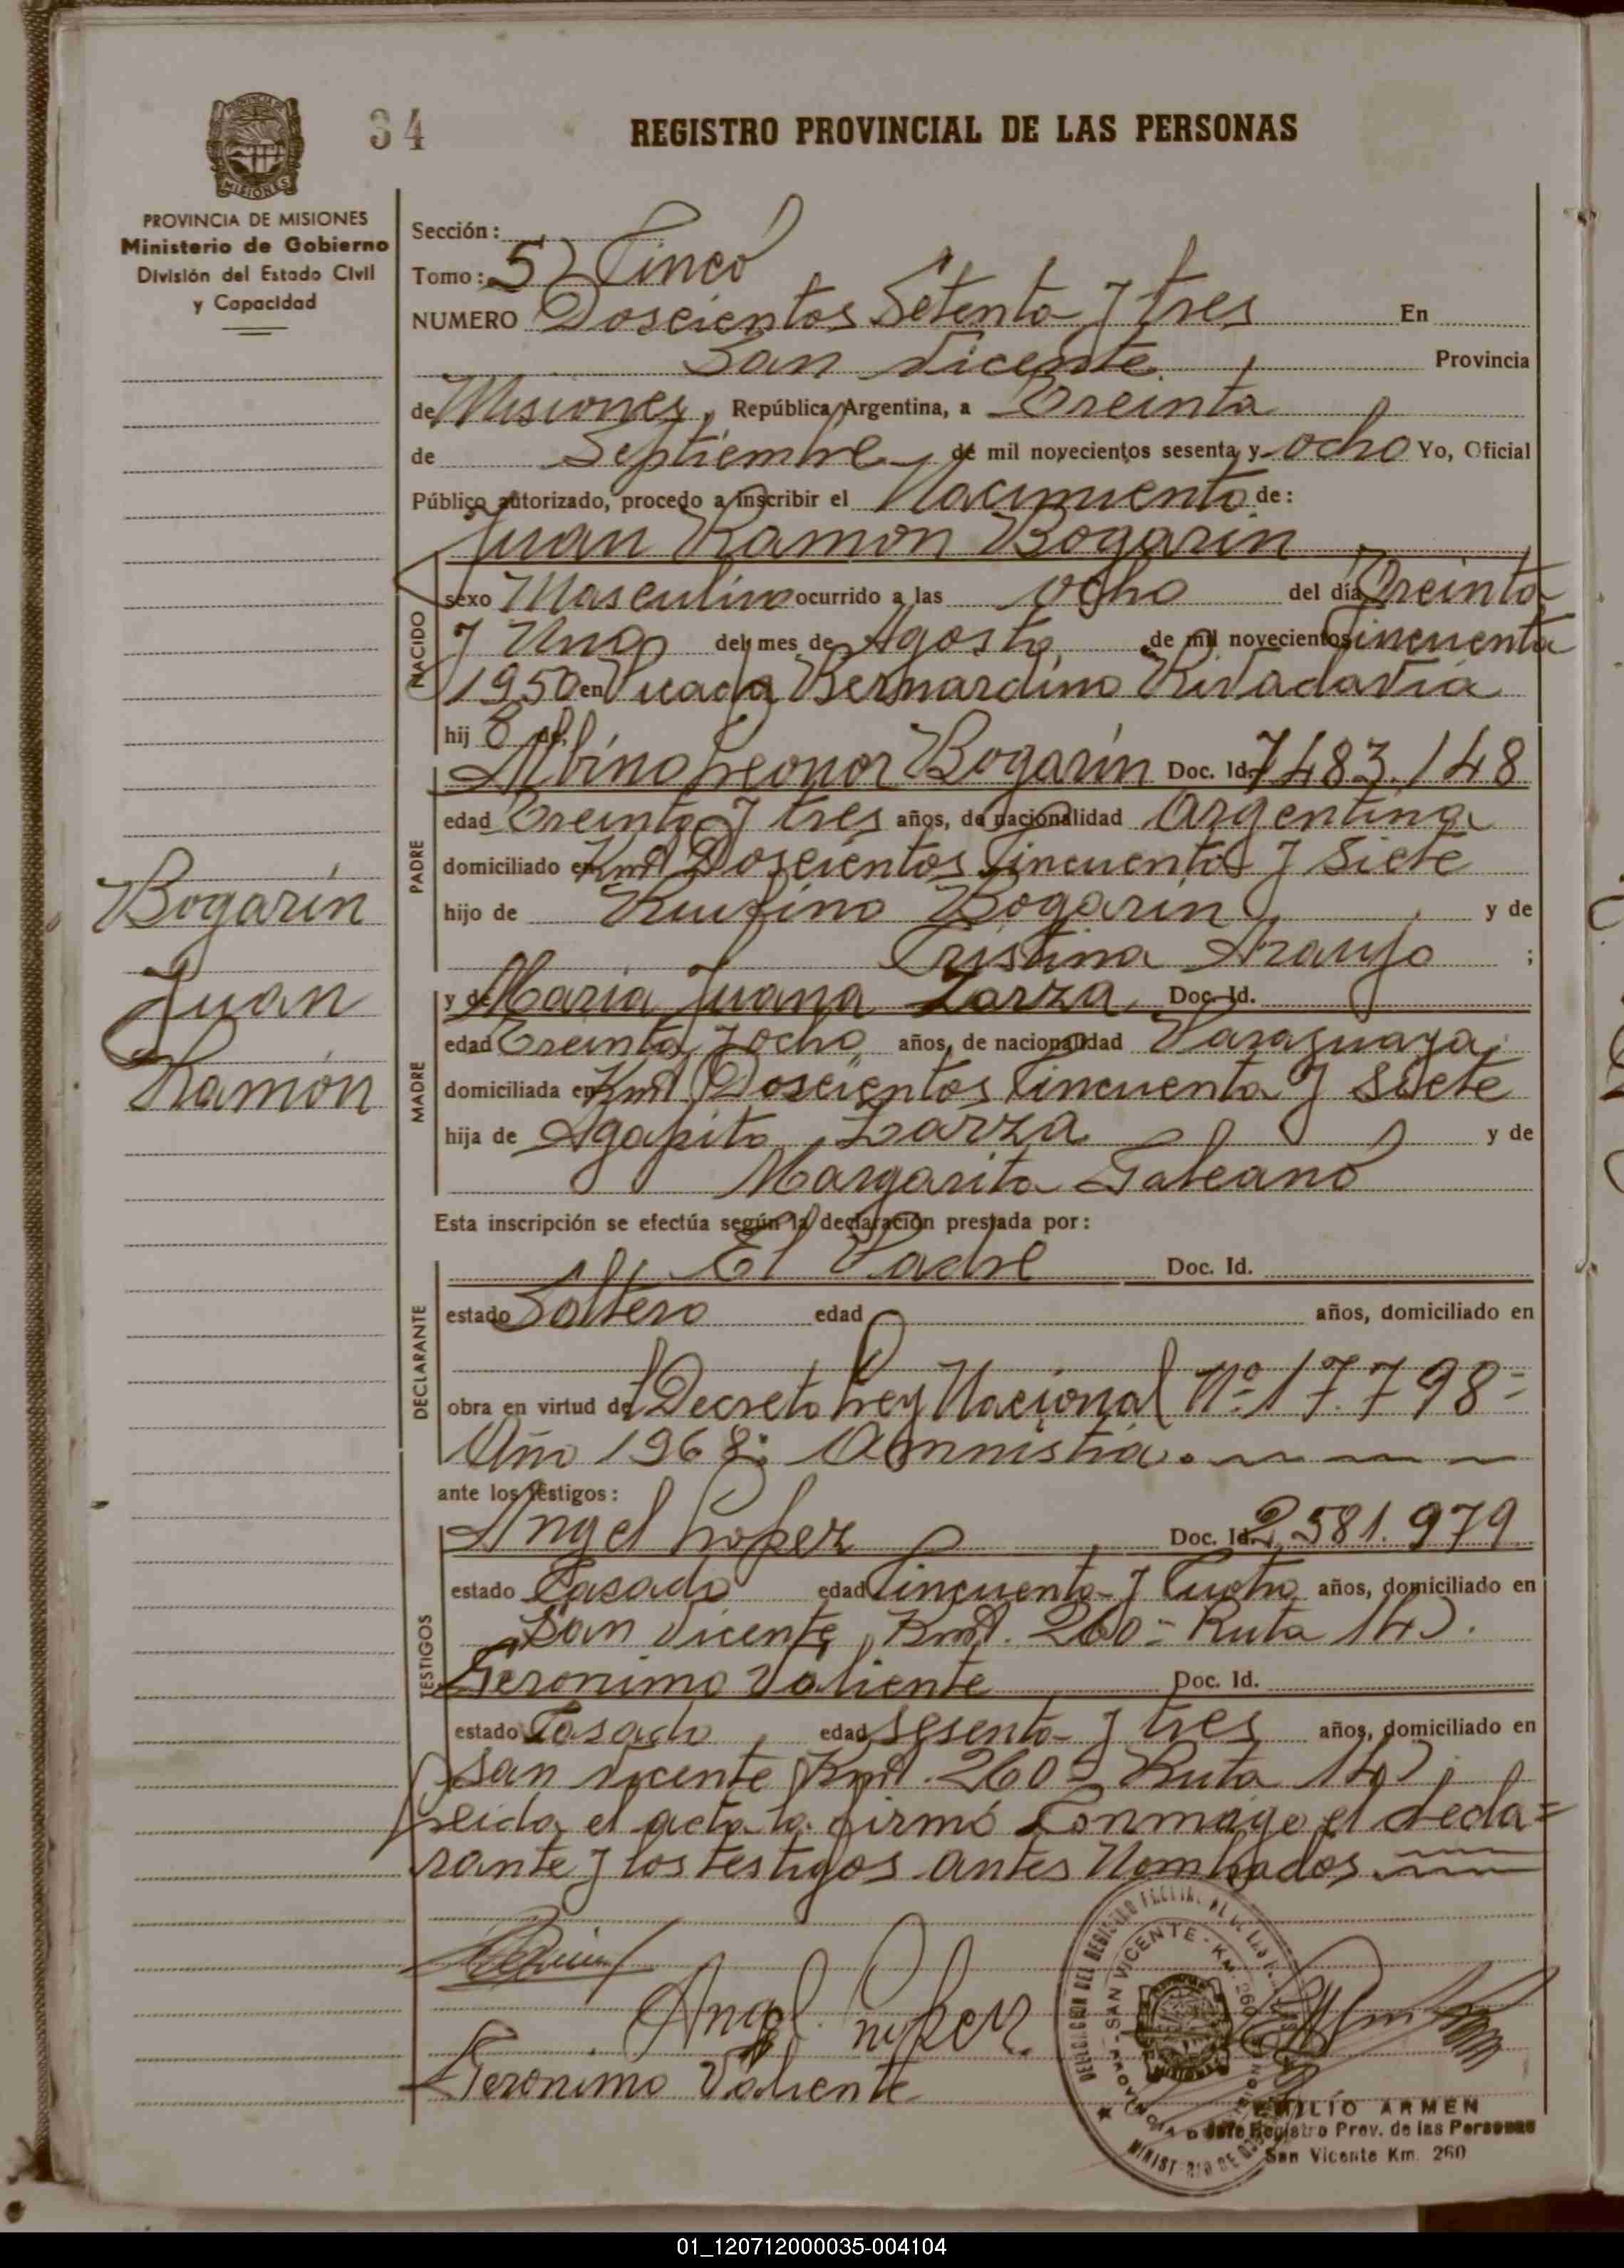 34
REGISTRO PROVINCIAL DE LAS PERSONAS
PROVINCIA DE MISIONES
Ministerio de Gobierno
División del Estado Civil
y Capacidad
Sección:
Tomo: 5) Cinco
NUMERO Doscientos Setenta y tres En
San Vicente Provincia
de Misiones, República Argentina, a Treinta
de Septiembre de mil novecientos sesenta y ocho Yo, Oficial
Público autorizado, procedo a inscribir el Nacimiento de:
Juan Ramon Bogarin
NACIDO
sexo Masculino ocurrido a las ocho del día Treinta
y Uno del mes de Agosto de mil novecientos Cincuenta
1950 en Picada Bernardino Rivadavia
hij o de
PADRE
Albino Leonor Bogarin Doc. Id. 7483.148
edad Treinta y tres años, de nacionalidad Argentina
domiciliado en Km Doscientos Cincuenta y Siete
hijo de Rufino Bogarin y de
Cristina Araujo ;
Bogarín
Juan
Ramón
MADRE
y de Maria Juana Zarza, Doc. Id.
edad Treinta y ocho años, de nacionalidad Paraguaya
domiciliada en Km Doscientos Cincuenta y Siete
hija de Agapito Zarza y de
Margarita Galeano
Esta inscripción se efectúa según la declaración prestada por:
DECLARANTE
El Padre Doc. Id.
estado Soltero edad años, domiciliado en
obra en virtud del Decreto Ley Nacional Nº 17.798=
Año 1968: Amnistia.
ante los testigos:
TESTIGOS
Angel Lopez Doc. Id. 2.581.979
estado Casado edad Cincuenta y Cuatro años, domiciliado en
San Vicente, Km. 260= Ruta 14).
Geronimo Valiente Doc. Id.
estado Casado, edad Sesenta y tres años, domiciliado en
San Vicente Km. 260= Ruta 14)
Leida el acta la firmó Conmigo el decla=
rante y los testigos antes Nombrados
Angel Lopez
Geronimo Valiente
SAN VICENTE - KM. 260
MISIONES
EMILIO ARMEN
Jefe Registro Prov. de las Personas
San Vicente Km. 260
01_120712000035-004104